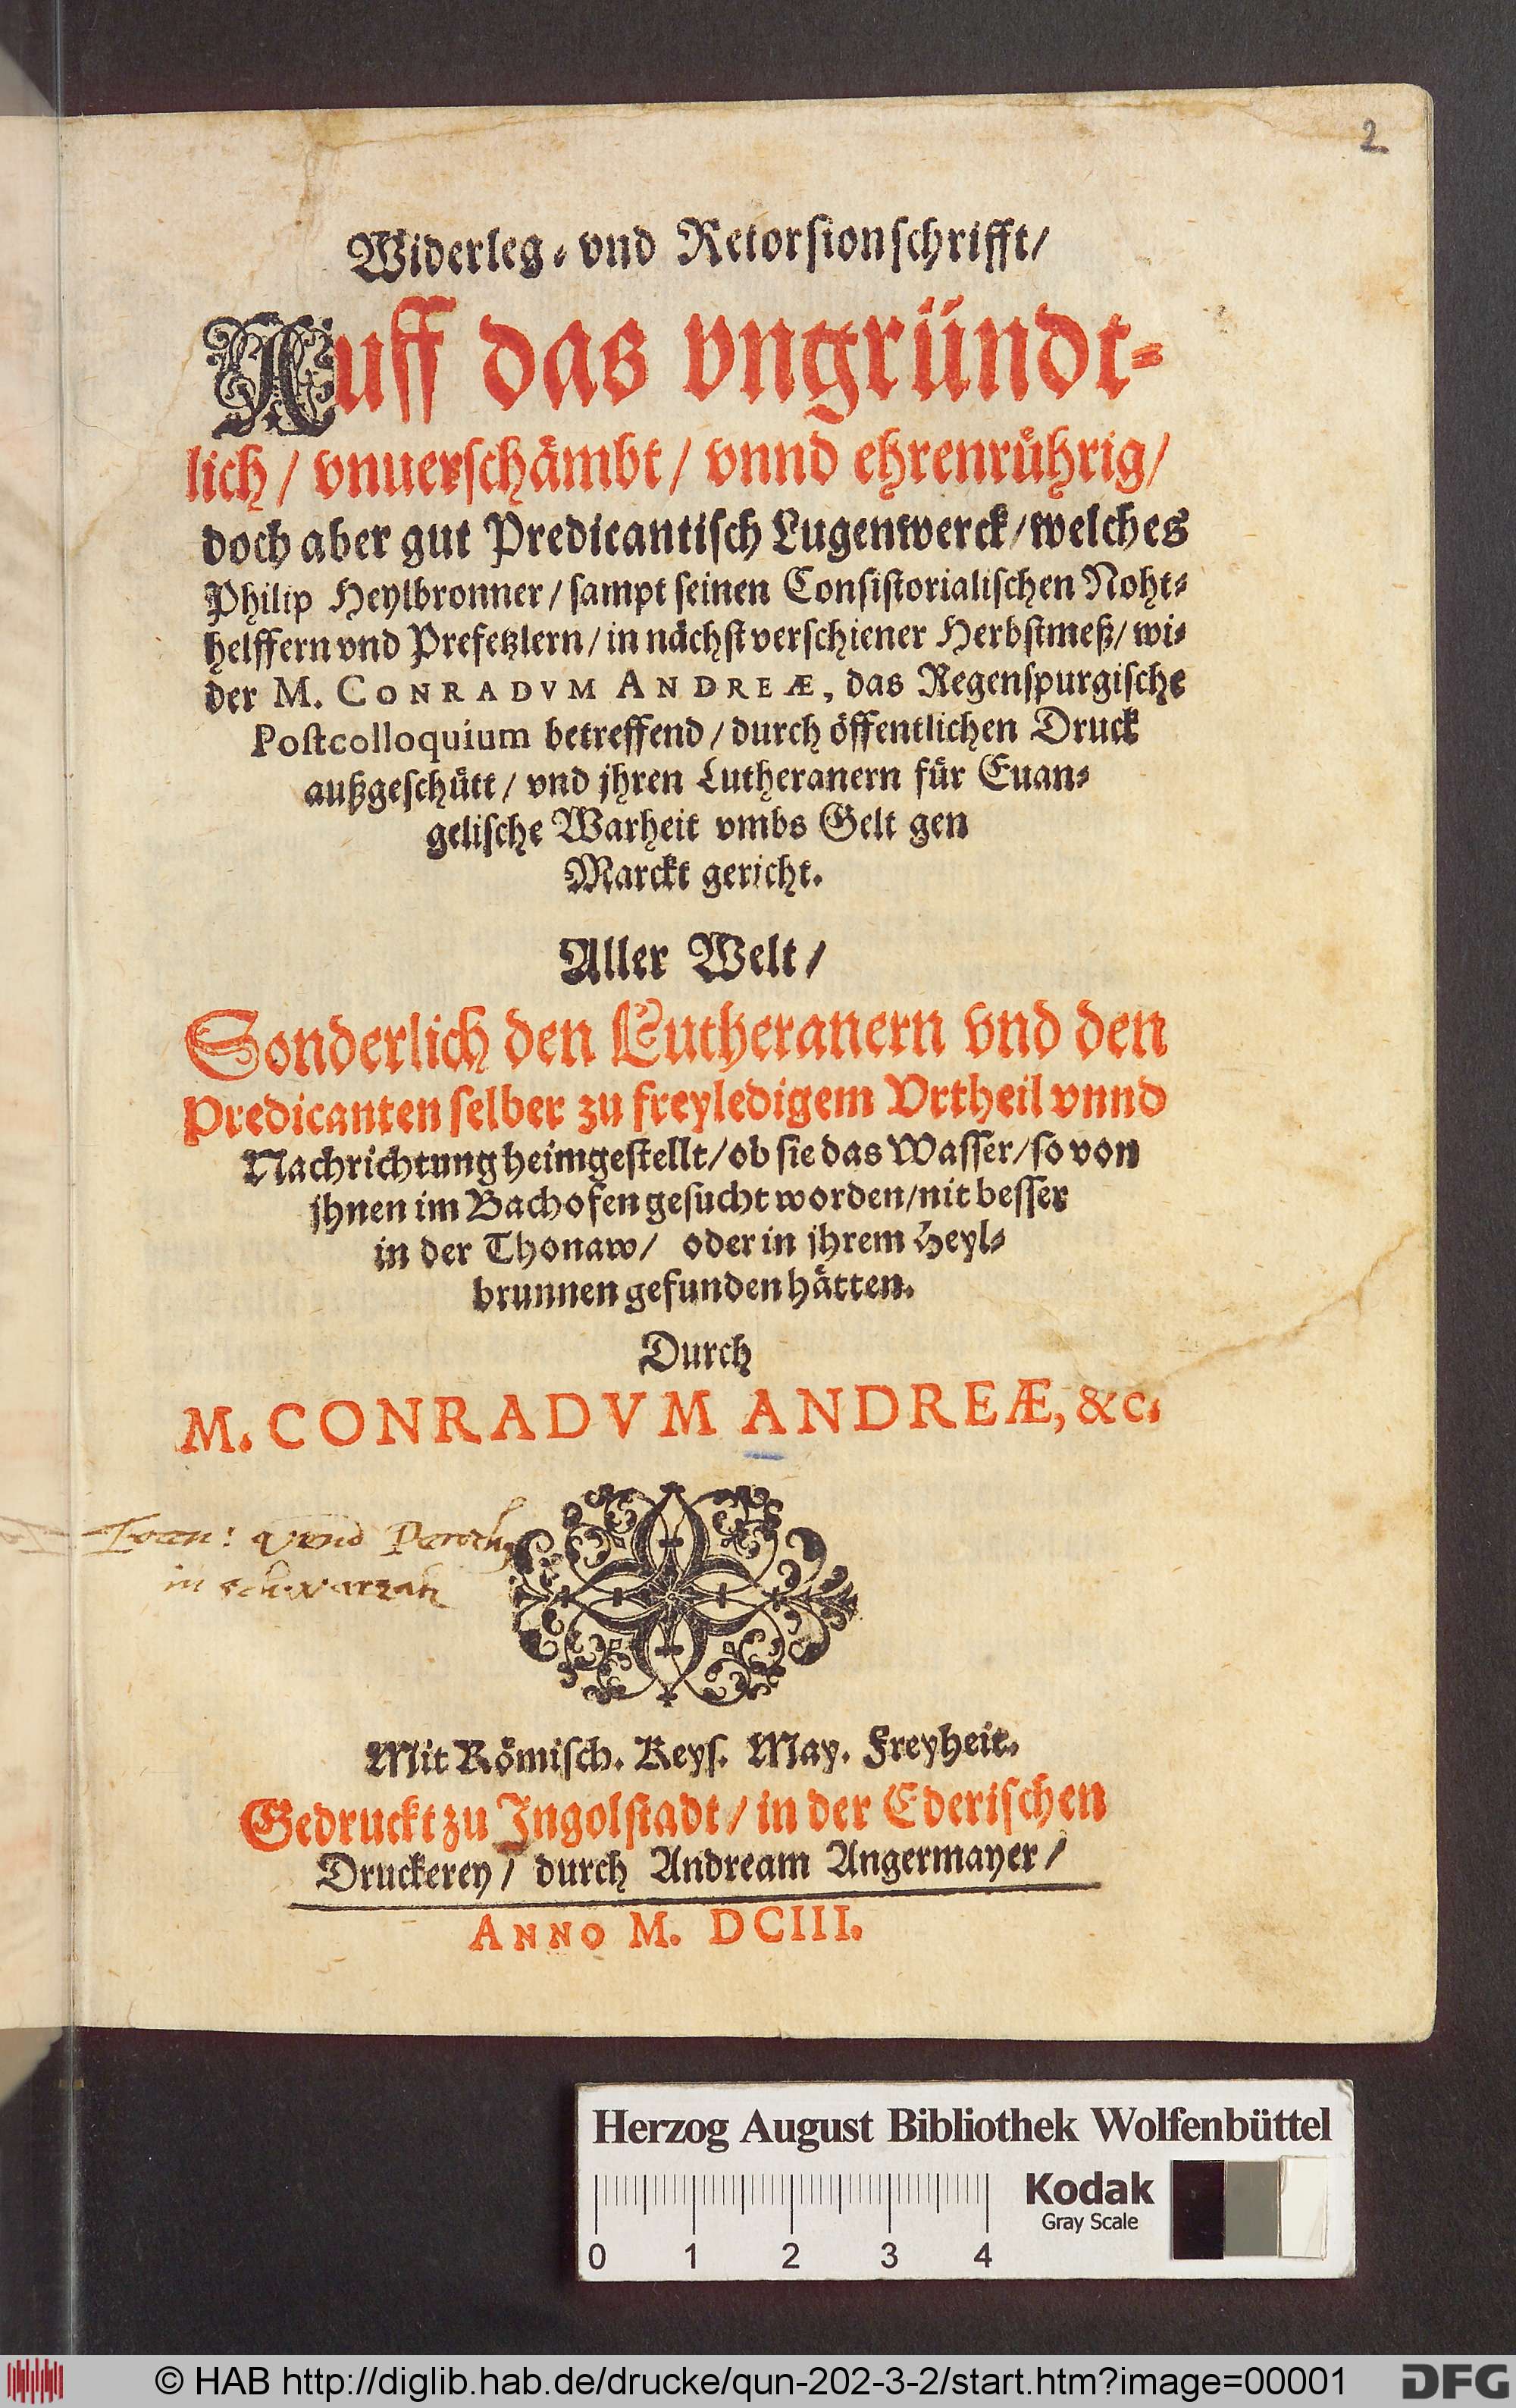 2
Widerleg- vnd Retorsionschrifft/
Auff das vngründt-
lich/ vnuerschåmbt/ vnnd ehrenrůhrig/
doch aber gut Predicantisch Lugenwerck/ welches
Philip Heylbronner/ sampt seinen Consistorialischen Noht-
helffern vnd Prefetzlern/ in nåchst verschiener Herbstmeß/ wi-
der M. CONRADVM ANDREÆ, das Regenspurgische
Postcolloquium betreffend/ durch öffentlichen Druck
außgeschütt/ vnd jhren Lutheranern für Euan-
gelische Warheit vmbs Gelt gen
Marckt gericht.
Aller Welt/
Sonderlich den Lutheranern vnd den
Predicanten selber zu freyledigem Vrtheil vnnd
Nachrichtung heimgestellt/ ob sie das Wasser/ so von
jhnen im Bachofen gesucht worden/ nit besser
in der Thonaw/ oder in jhrem Heyl-
brunnen gefunden hätten.
Durch
M. CONRADVM ANDREÆ, &c.
Ioan:
in
Mit Römisch. Keys. May. Freyheit.
Gedruckt zu Ingolstadt/ in der Ederischen
Druckerey/ durch Andream Angermayer/
ANNO M. DCIII.
Herzog August Bibliothek Wolfenbüttel
Kodak
Gray Scale
0 1 2 3 4
© HAB http://diglib.hab.de/drucke/qun-202-3-2/start.htm?image=00001
DFG